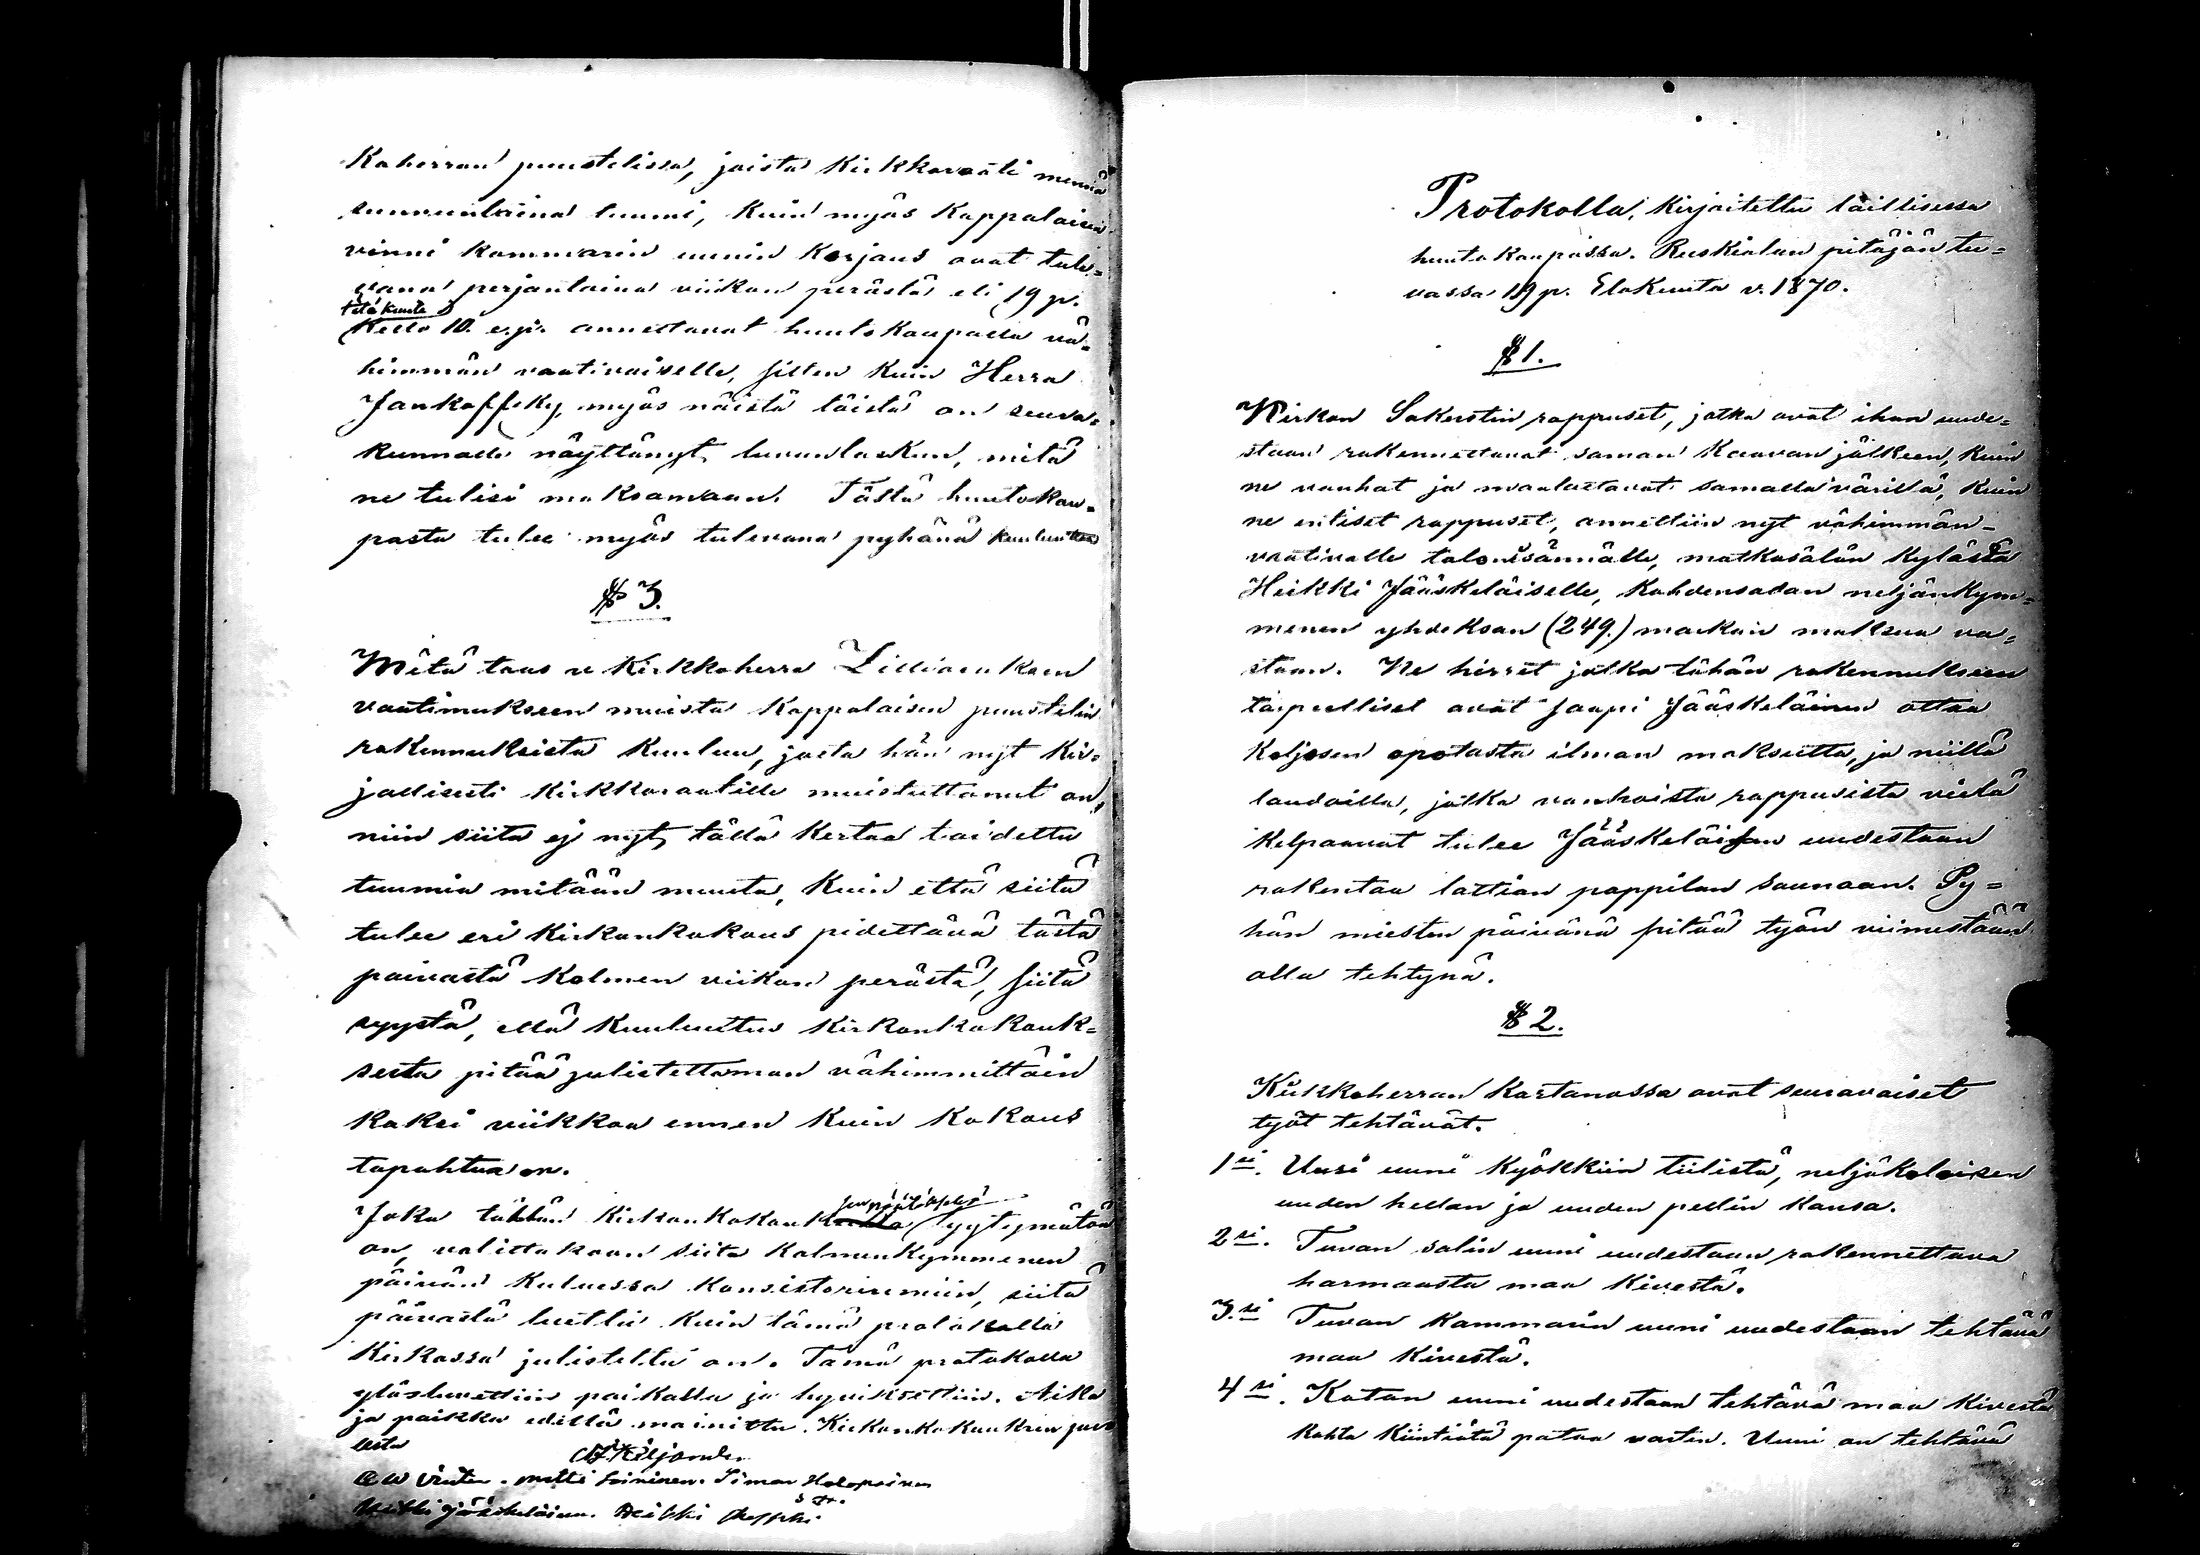 Koherran puustelissa, joista Kirkkoraati
kuin myös Kappalaisen
kammarin uunin Korjaus ovat tule-
vana perjantaina viikon perästä eli 19 p.
Elokuuta
Kello 10. e.p. annettavat huutokaupalla vä-
himmän vaativaiselle, sitten kuin Herra
Jankoffsky, myös näistä töistä on seura-
kunnalle näyttänyt luvunlaskun, mitä
ne tulisi maksamaan. Tästä huutokau-
pasta tulee myös tulevana pyhänä kuulutettaa
§ 3.
Mitä taas v. Kirkkoherra
vaatimukseen muista Kappalaisen puustelin
rakennuksista kuuluu, josta hän nyt Kir-
jallisesti Kirkkoraatille muistuttanut on,
niin siitä ej nyt tällä kertaa taidettu
tuumia mitään muuta, Kuin että siitä
tulee eri Kirkonkokous pidettävä tästä
päivästä Kolmen viikon perästä, siitä
syystä, että Kuulutus Kirkonkokouk-
sesta pitää julistettaman vähimmittäin
kaksi viikkoa ennen kuin Kokous
tapahtua on.
Joka tähän Kirkonkokouksen päätökseen tyytymätön
on, valittakaan siitä Kolmenkymmenen
päivän Kuluessa Konsistoriumiin, siitä
päivästä luettu Kuin tämä protokolla
Kirkossa julistettu on. Tämä protokolla
ylösluettiin paikalla ja hyviksittiin. Aika
ja paikka edellä mainittu. Kirkonkokouksen puo-
lesta
Kiljander
Matti Soininen. Simon Holopainen
Heikki Jääskeläinen. Heikki
Protokolla, Kirjoitettu laillisessa
huutokaupassa. Ruskialan pitäjän tu-
vassa 19 p. Elokuuta v. 1870.
§ 1.
Kirkon Sakerstin rappuset, jotka ovat ihan uude-
staan rakennettavat saman Kaavan jälkeen, Kuin
ne vanhat ja maalattavat samalla värillä, Kuin
ne entiset rappuset, annettiin nyt vähimmän-
vaativalle talonisännälle, matkasälän Kylästä
Heikki Jääskeläiselle, Kahdensadan neljänkym-
menen yhdeksan (249.) markan maksua va-
staan. Ne hirret jotka tähän rakennukseen
tarpeelliset ovat saapi Jääskeläinen ottaa
Koljosen opotasta ilman maksutta, ja niillä
laudoilla, jotka vanhoista rappusista vielä
kelpaavat tulee Jääskeläisen uudestaan
rakentaa lattian pappilan saunaan. Py-
hän miesten päivänä pitää työn viimestään
olla tehtynä.
§ 2.
Kirkkoherran Kartanossa ovat seuravaiset
työt tehtävät.
1si. Uusi uuni Kyökkiin tiilistä, neljäkoloisen
uuden hellan ja uuden pellin Kansa.
2si. Tuvan salin uuni uudestaan rakennettava
harmaasta maa Kivestä.
3.si Tuvan Kammarin uuni uudestaan tehtävä
maa Kivestä.
4si. Kotan uuni uudestaan tehtävä maa Kivestä
kahta Kiintiätä pataa varten. Uuni on tehtävä